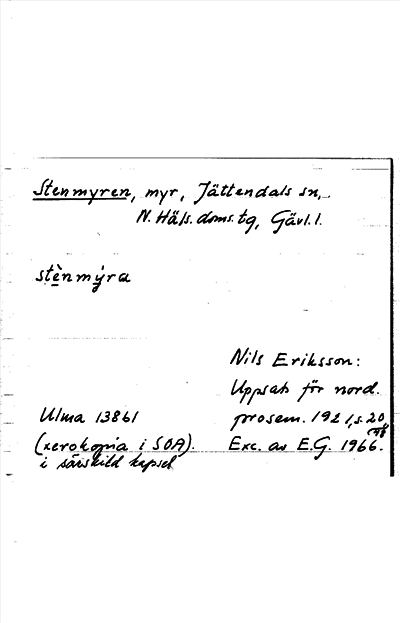 Stenmyren, myr, Jättendals sn,
N. Häls. doms. tg, Gävl. l.
stènmýra
Nils Eriksson:
Uppsats för nord.
Ulma 13861 prosem. 1921, s. 20
(xerokopia i SOA). Exc. av E.G. 1966.
i särskild kapsel